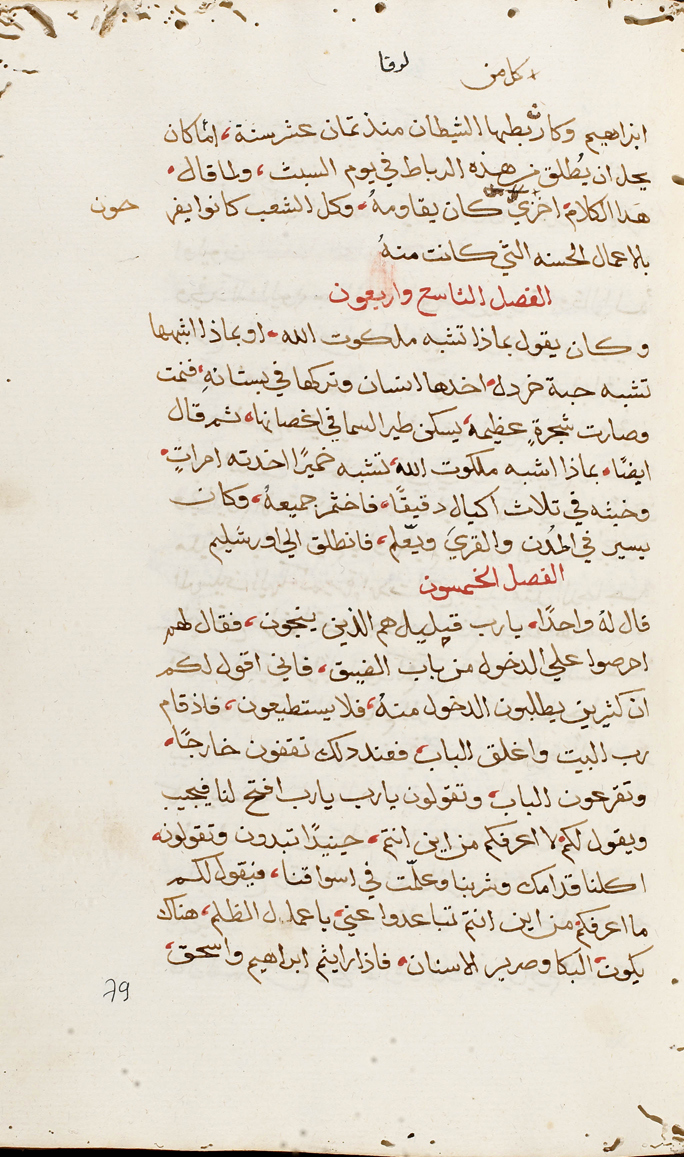 لوقا
+ كل من
ابراهيم وكان ربطها الشيطان منذ تمان عشر سنة، اماكان
يحل ان يُطلق من هذه الرباط في يوم السبت، ولما قال،
هدا الكلام اخزي كان يقاومهُ، وكل الشعب كانوا يفر حون
بالاعمال الحسنه التي كانت منهُ
الفصل التاسع واربعون
وكان يقول بماذا تشبه ملكوت الله، او بماذا اشبهها
تشبه حبة خردل، اخدها انسان وتركها في بستانهِ، فنمت
وصارت شجرةٍ عظيمه، يسكن طير السما في اغصانها، ثم قال
ايضًا، بماذا اشبه ملكوت الله، تشبه خميرًا اخدته امراتٍ،
وخبته في تلاث اكيال دقيقًا، فاختمر جميعهُ، وكان
يسير في المُدن والقريَ ويعّلم، فانطلق الي اورشَليم
الفصل الخمسون
قال لهُ واحدًا، يارب قليل هم الذين ينجون، فقال لهم
احرصوا علي الدخول من باب الضيق، فاني اقول لكم
ان كثيرين يطلبون الدخول منهُ، فلا يستطيعون، فاذ قام
رب البيت واغلق الباب، فعند دلك تقفون خارجًا،
وتقرعون الباب، وتقولون يارب يارب افتح لنا فيجيب
ويقول لكم، لا اعرفكم من اين انتم، حينيدًا تبدون وتقولون،
اكلنا قدامك وشربنا وعلّمت في اسواقنا، فيقول لكم
ما اعرفكم، من اين انتم تباعدوا عني، يا عمال الظلم، هناك
يكون، البكا وصرير الاسنان، فاذا رايتم ابراهيم واسحق،
79